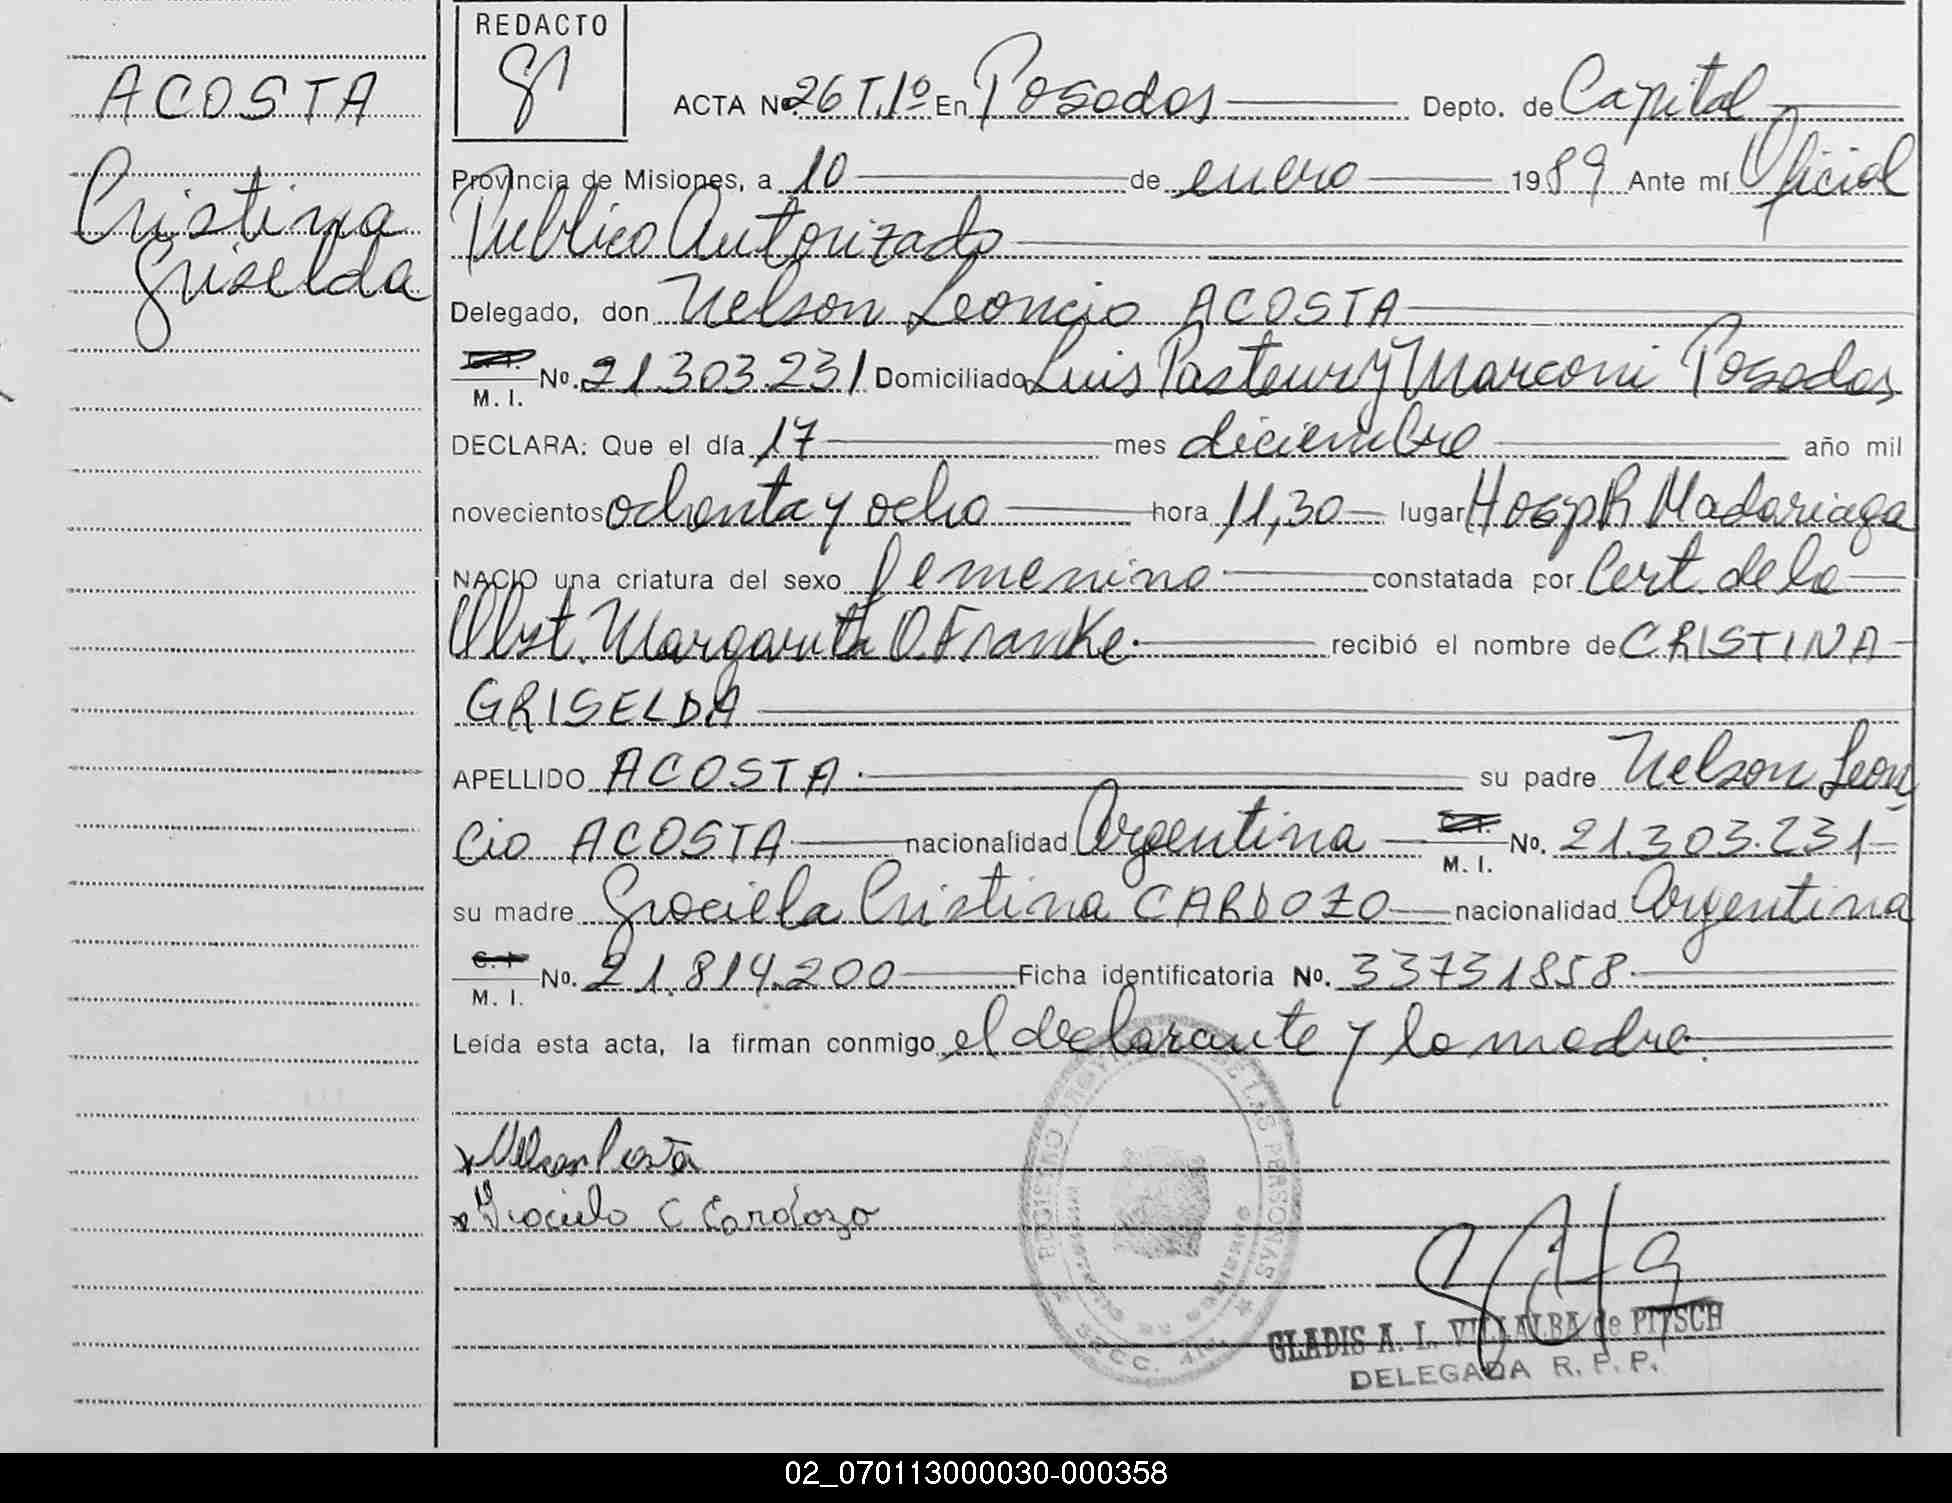 ACOSTA
Cristina
Griselda
REDACTO
ACTA Nº 26 T.1º En Posadas Depto. de Capital
Provincia de Misiones, a 10 de enero 1989 Ante mí Oficial
Publico Autorizado
Delegado, don Nelson Leoncio ACOSTA
M. I. No. 21.303.231 Domiciliado Luis Pasteur y Marconi Posadas
DECLARA: Que el día 17 mes diciembre año mil
novecientos ochenta y ocho hora 11,30 lugar Hosp R Madariaga
NACIO una criatura del sexo femenino constatada por Cert. de la
Obst. Margarita O. Franke. recibió el nombre de CRISTINA
GRISELDA
APELLIDO ACOSTA. su padre Nelson Leon
cio ACOSTA nacionalidad Argentina M. I. No. 21.303.231
su madre Graciela Cristina CARDOZO nacionalidad Argentina
C. I. M. I. No. 21.814.200 Ficha identificatoria No. 33731858
Leída esta acta, la firman conmigo el declarante y la madre.
x Nelson Acosta
x Graciela C Cardozo
REGISTRO PROV DE LAS PERSONAS
SECC. 4ta.
GLADIS A. L. VILLALBA de PITSCH
DELEGADA R. P. P.
02_070113000030-000358